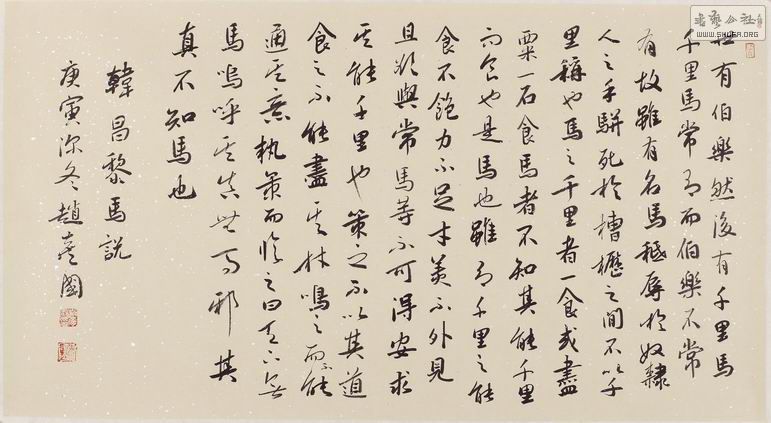 世有伯樂然後有千里馬
千里馬常有而伯樂不常
有故雖有名馬秪辱於奴隸
人之手駢死於槽櫪之間不以千
里稱也馬之千里者一食或盡
粟一石食馬者不知其能千里
而食也是馬也雖有千里之能
食不飽力不足才美不外見
且欲與常馬等不可得安求
其能千里也策之不以其道
食之不能盡其材鳴之而不能
通其意執策而臨之曰天下無
馬嗚呼其真無馬邪其
真不知馬也
韓昌黎馬說
庚寅深冬趙彥國
書藝公社
WWW.SHUFA.ORG